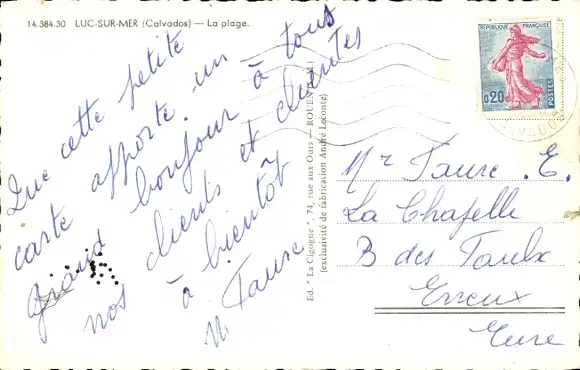 14.384.30 LUC-SUR-MER (Calvados) — La plage.
Que cette petite
carte apporte un
grand bonjour à tous
nos clients et clientes
à bientôt
M. Faure
Ed. "La Cigogne", 74, rue aux Ours — ROUEN
(exclusivité de fabrication André Leconte)
0,20
POSTES
CALVADOS
Mr Faure . E.
La Chapelle
B des
Evreux
Eure